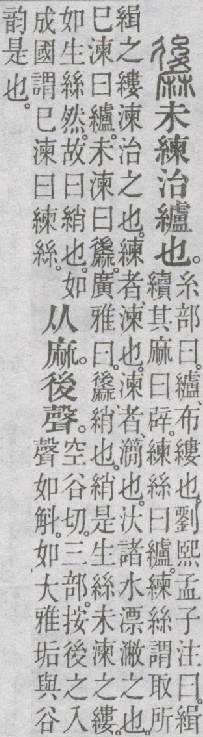 𪎭未練治纑也。糸部曰。纑、布縷也。劉熙孟子注曰。緝
續其麻曰辟。練絲曰纑。練絲謂取所
緝之縷湅治之也。練者、湅也。湅者、㶕也。汏諸水漂潎之也。
巳湅曰纑。未湅曰𪎭。廣雅曰。𪎭綃也。綃是生絲未湅之縷。
如生絲然。故曰綃也。如
成國謂巳湅曰練絲。
从麻。後聲。空谷切。三部。按後之入
聲如斛。如大雅垢與谷
韵是也。